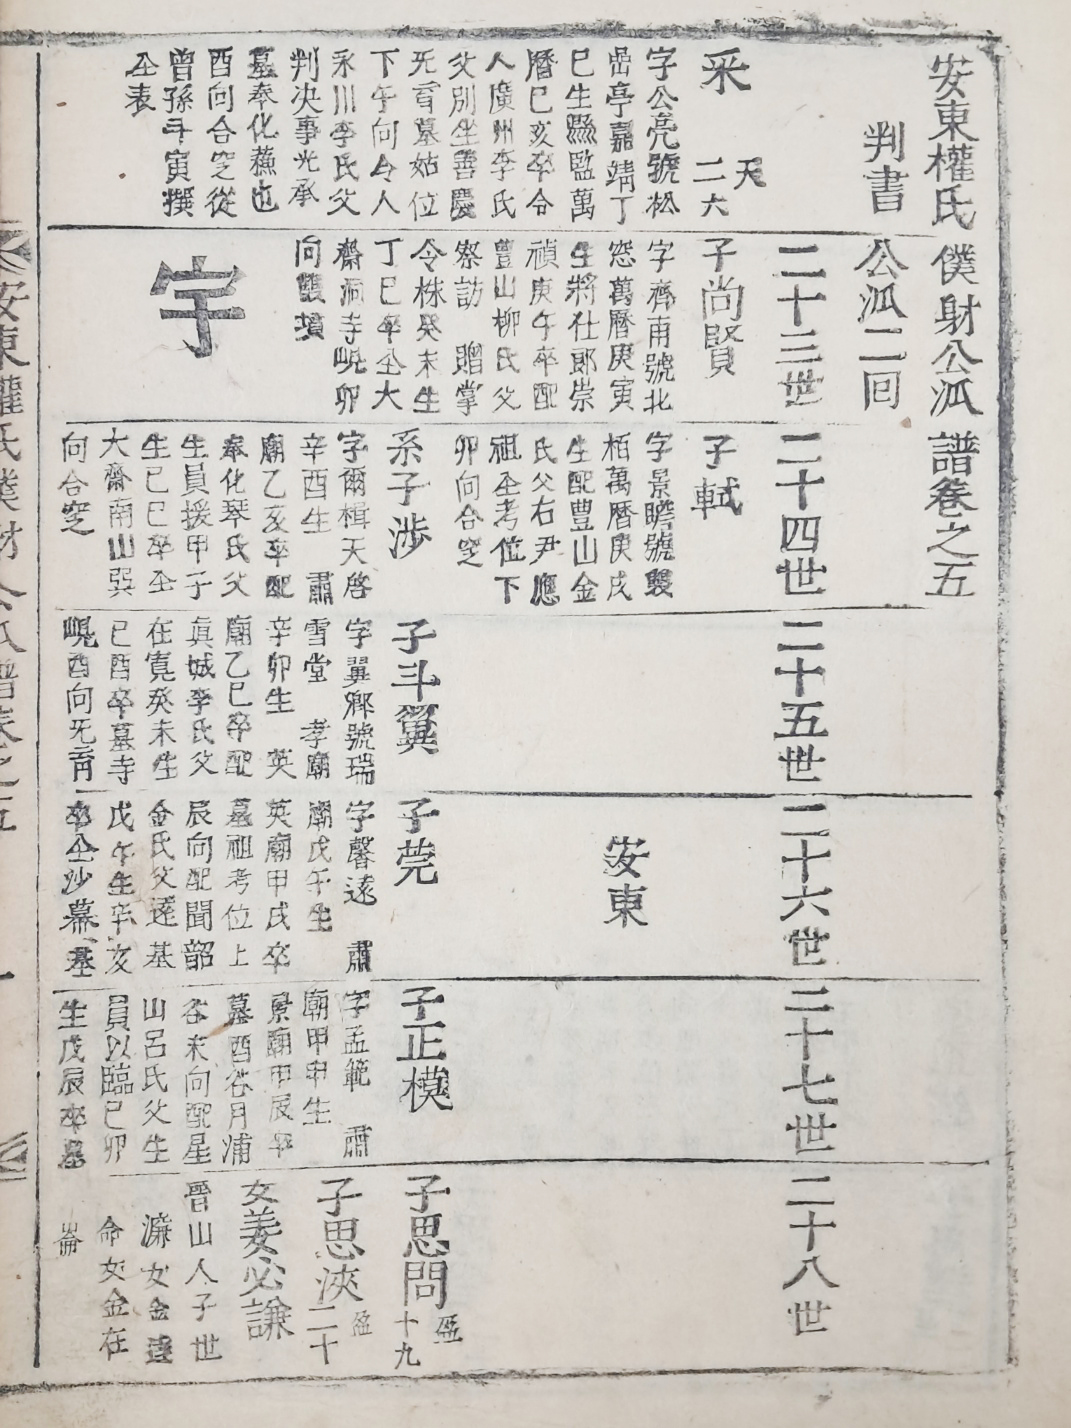 安東權氏 僕射公派 譜卷之五
判書公派二囘
二十三世
二十四世
二十五世
二十六世
二十七世
二十八世
采 天二六
字公亮號松
嵒亭嘉靖丁
巳生縣監萬
曆己亥卒合
人廣州李氏
父別坐善慶
无育墓姑位
下午向令人
永川李氏父
判决事光承
墓奉化蘓也
酉向合窆從
曾孫斗寅撰
仝表
子尚賢
字齊甫號北
窓萬曆庚寅
生將仕郞崇
禎庚午卒配
豊山柳氏父
察訪 贈掌
令袾癸未生
丁巳卒仝大
齋洞寺峴卯
向雙墳
宇
子軾
字景瞻號雙
栢萬曆庚戌
生配豊山金
氏父右尹應
祖仝考位下
卯向合窆
系子渉
字爾楫天啓
辛酉生 肅
廟乙亥卒配
奉化琴氏父
生員援甲子
生己巳卒仝
大齋南山巽
向合窆
子斗翼
字翼卿號瑞
雪堂 孝廟
辛卯生 英
廟乙巳卒配
眞城李氏父
在寬癸未生
己酉卒墓寺
峴酉向无育
安東
子莞
字馨遠 肅
廟戊午生
英廟甲戌卒
墓祖考位上
辰向配聞韶
金氏父逺基
戊午生辛亥
卒仝沙幕墓
子正模
字孟範 肅
廟甲申生
景廟甲辰卒
墓酉谷月浦
谷未向配星
山呂氏父生
員以臨己卯
生戊辰卒墓
子思問 盈十九
子思浹 盈二十
女姜必謙
晋山人子世
濂女金達
命女金在
崙